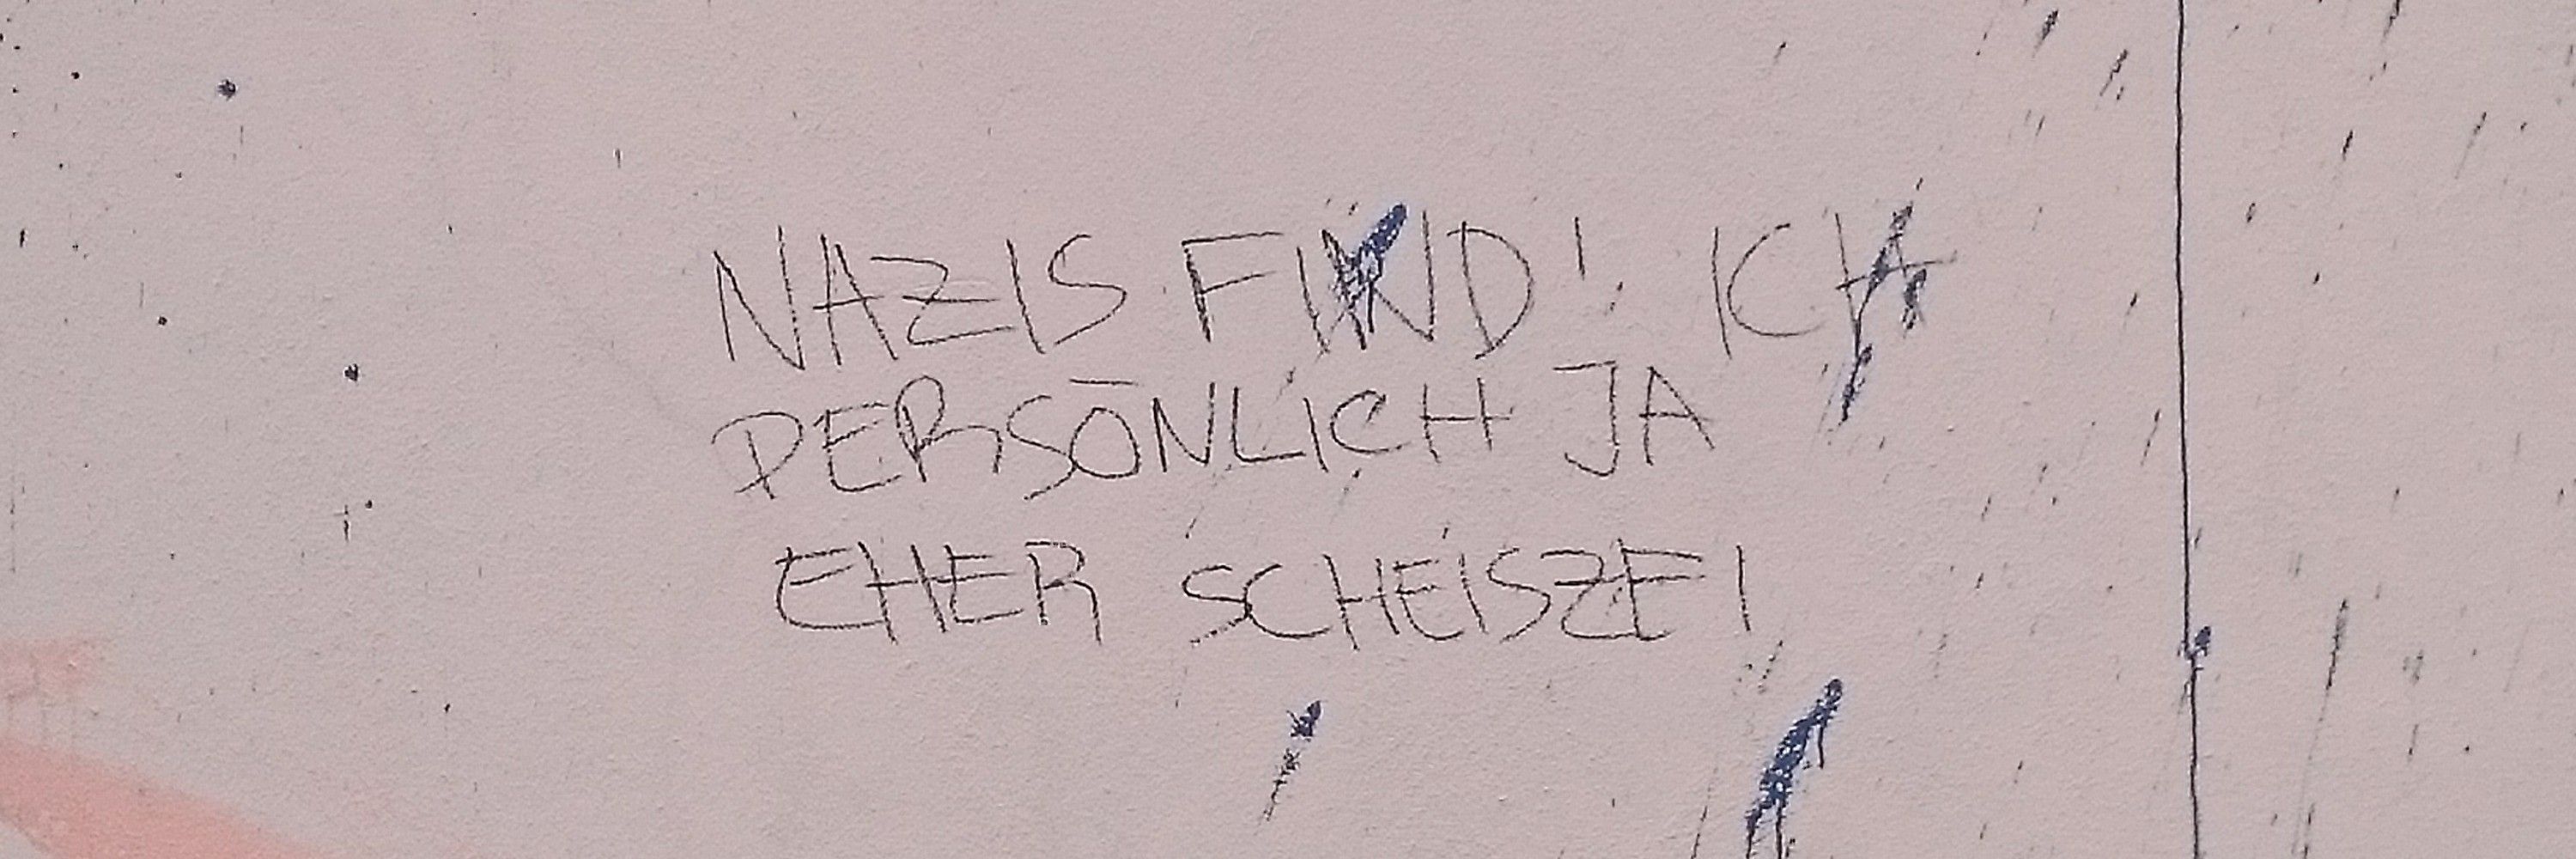 NAZIS FIND' ICH
PERSÖNLICH JA
EHER SCHEISZE!